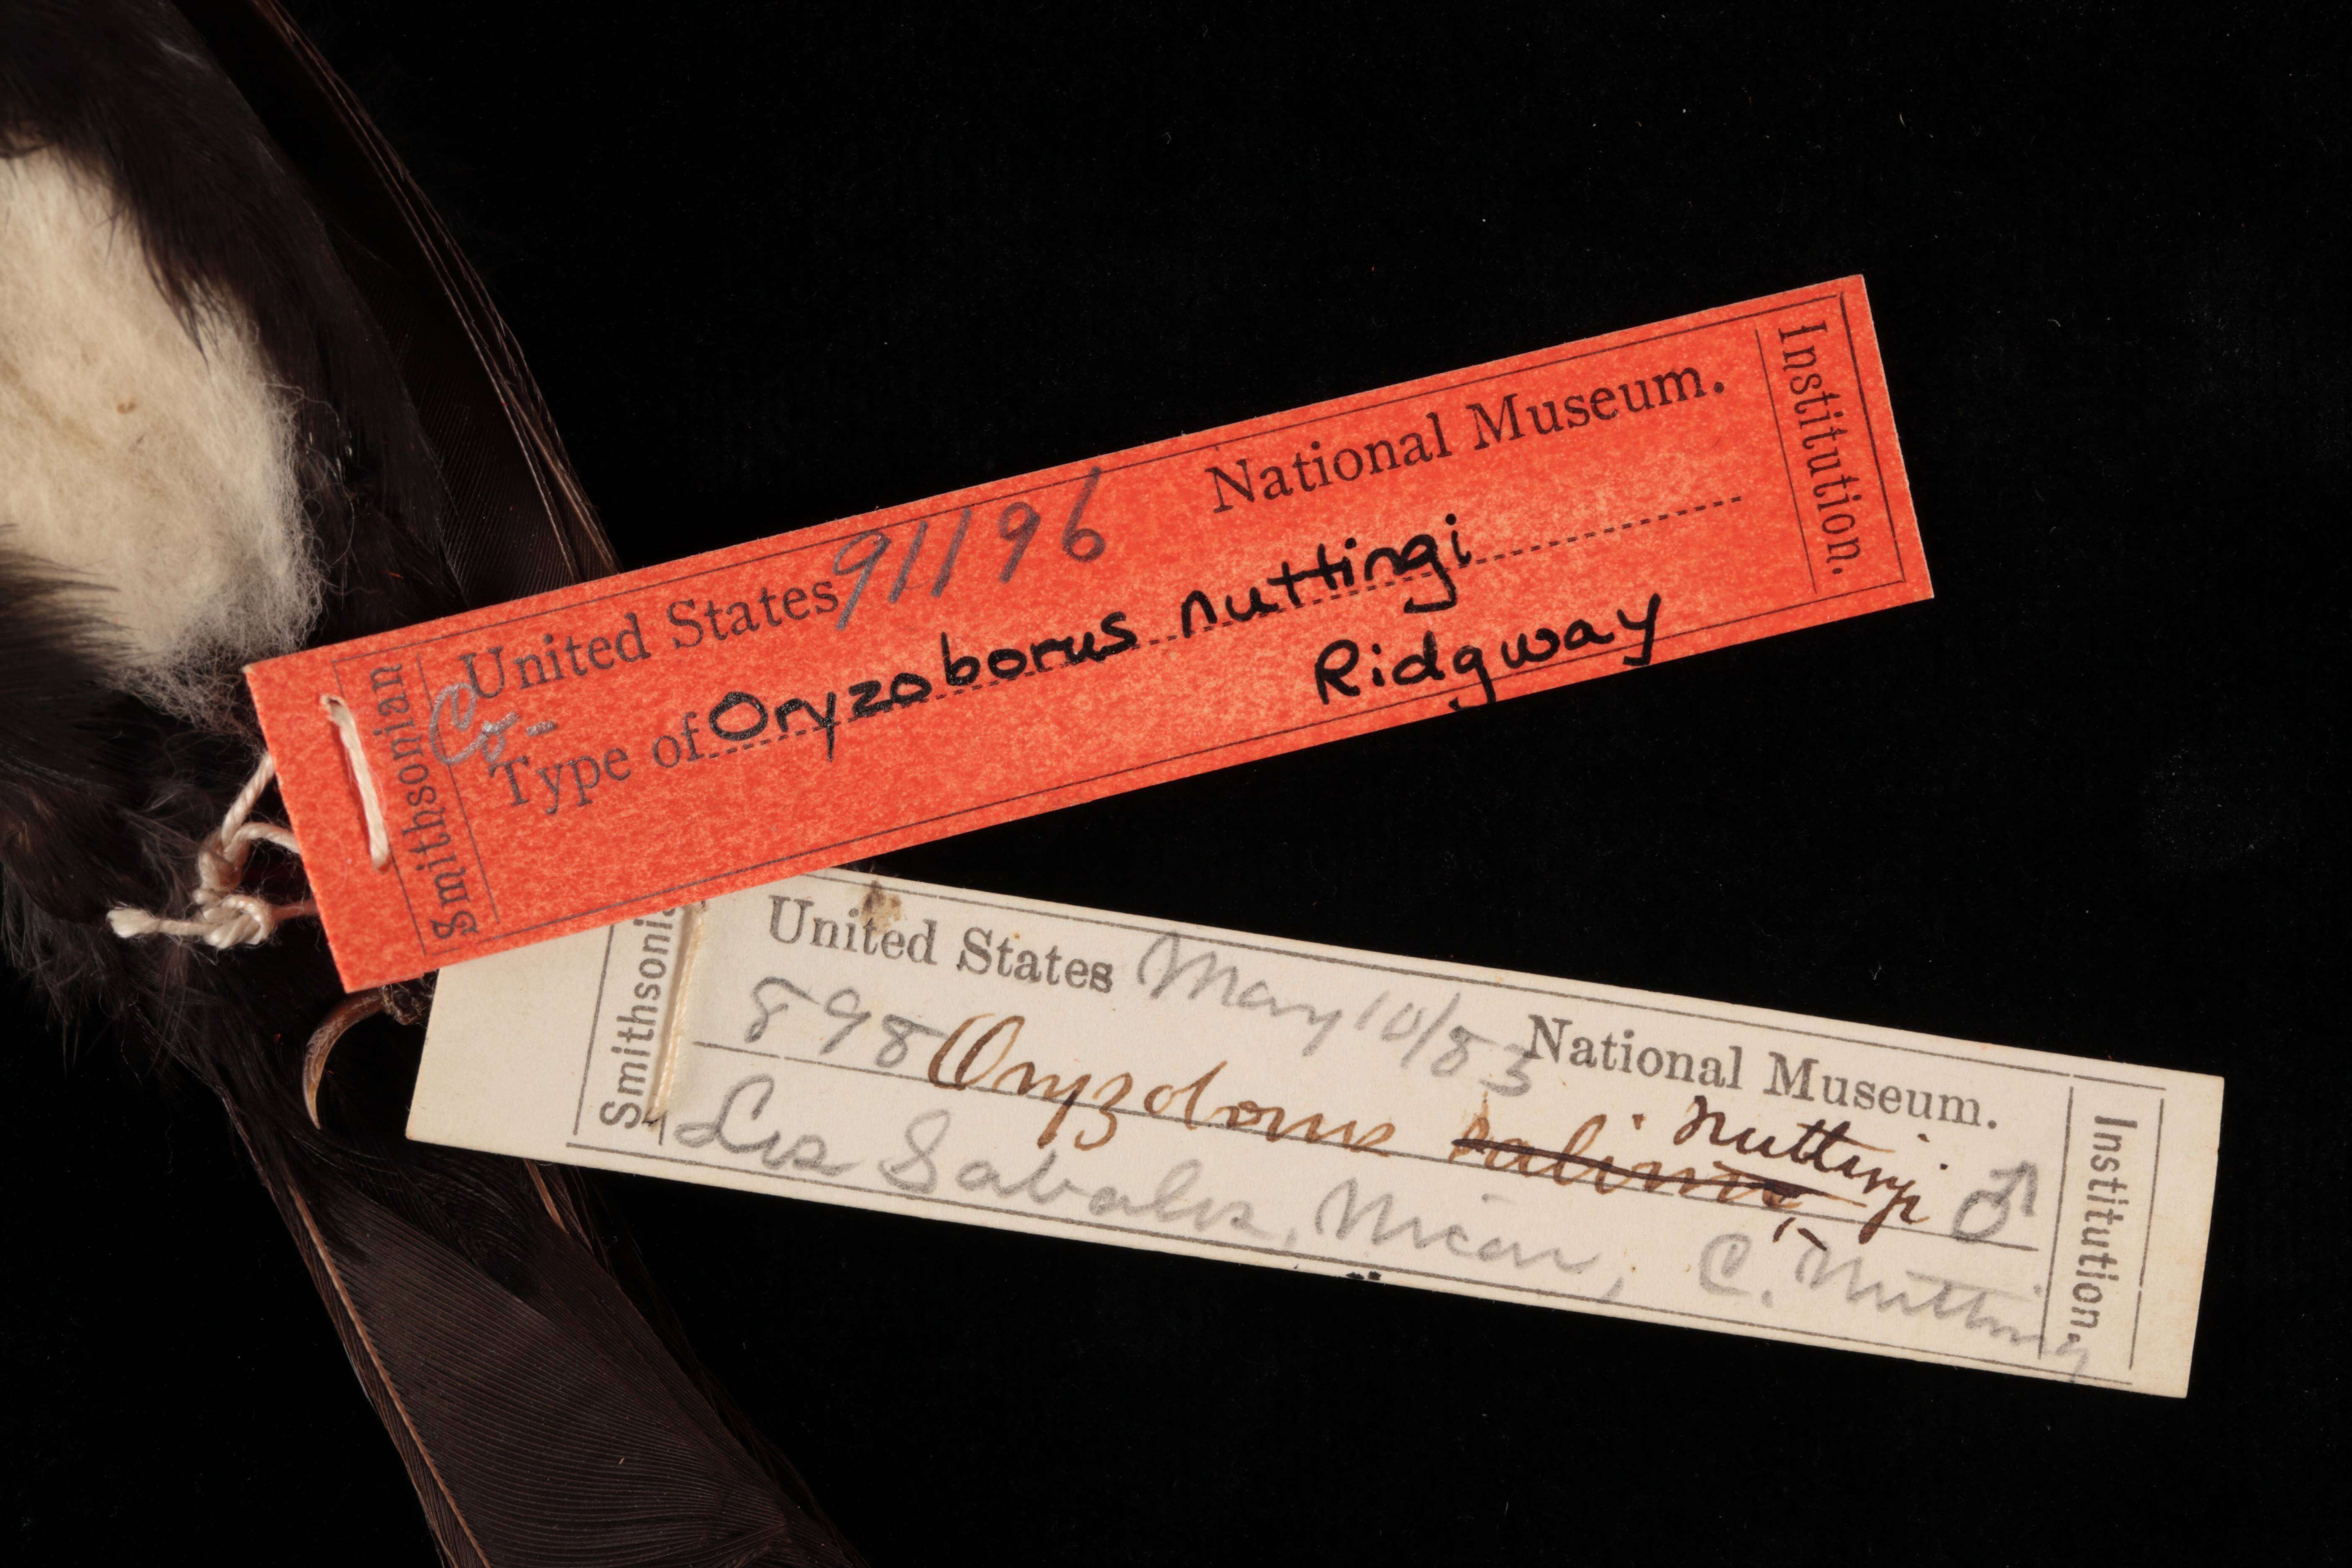 United States 91196 National Museum.
Co-
Type of Oryzoborus nuttingi
Ridgway
Smithsonian
Institution.
United States May 10/83 National Museum.
898 Oryzoborus salvini nuttingi ♂
Los Sabalos, Nicar, C. Nutting
Smithsonia
Institution.